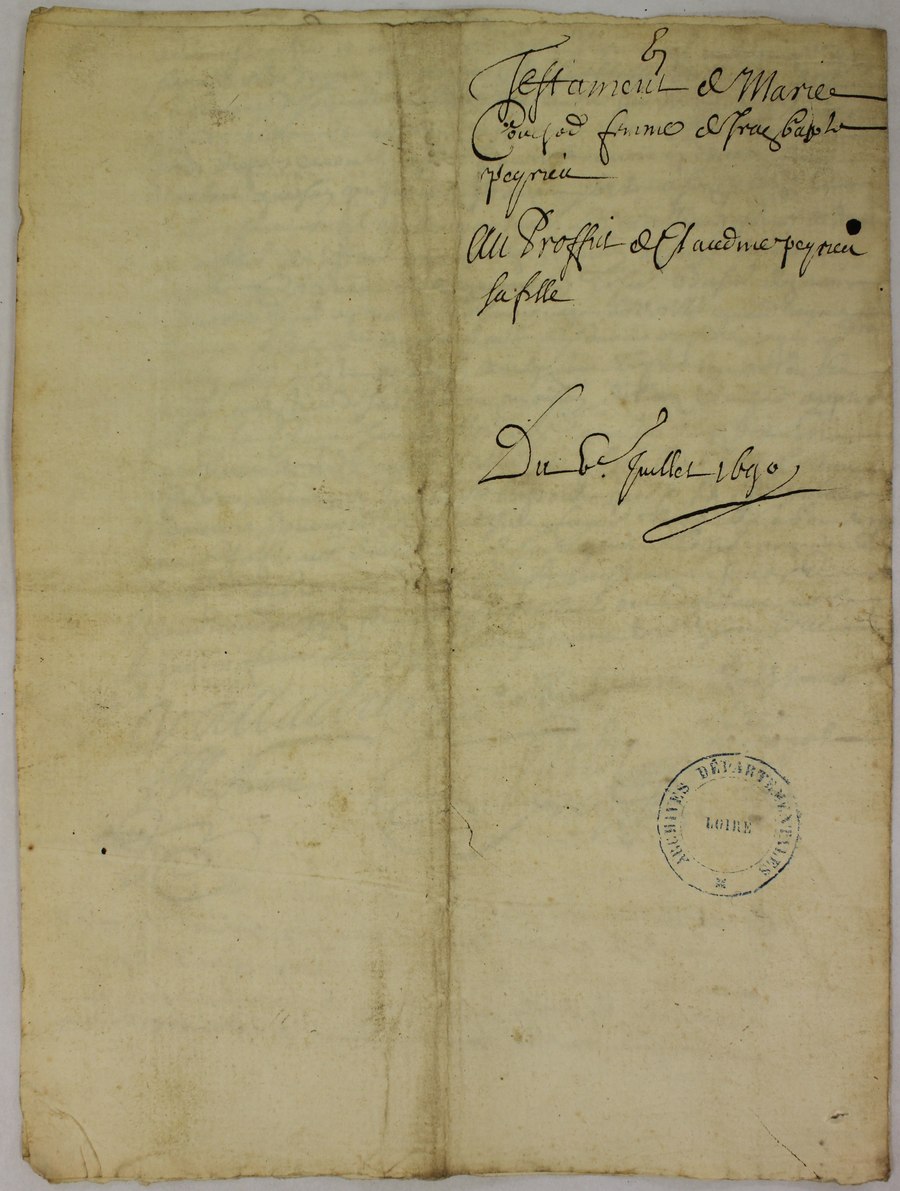 Testament de Marie
femme de
peyrieu
Au Proffit de Claudine peyrieu
sa fille
Du 6e. Juillet 1690
ARCHIVES DÉPARTEMENTALES
LOIRE